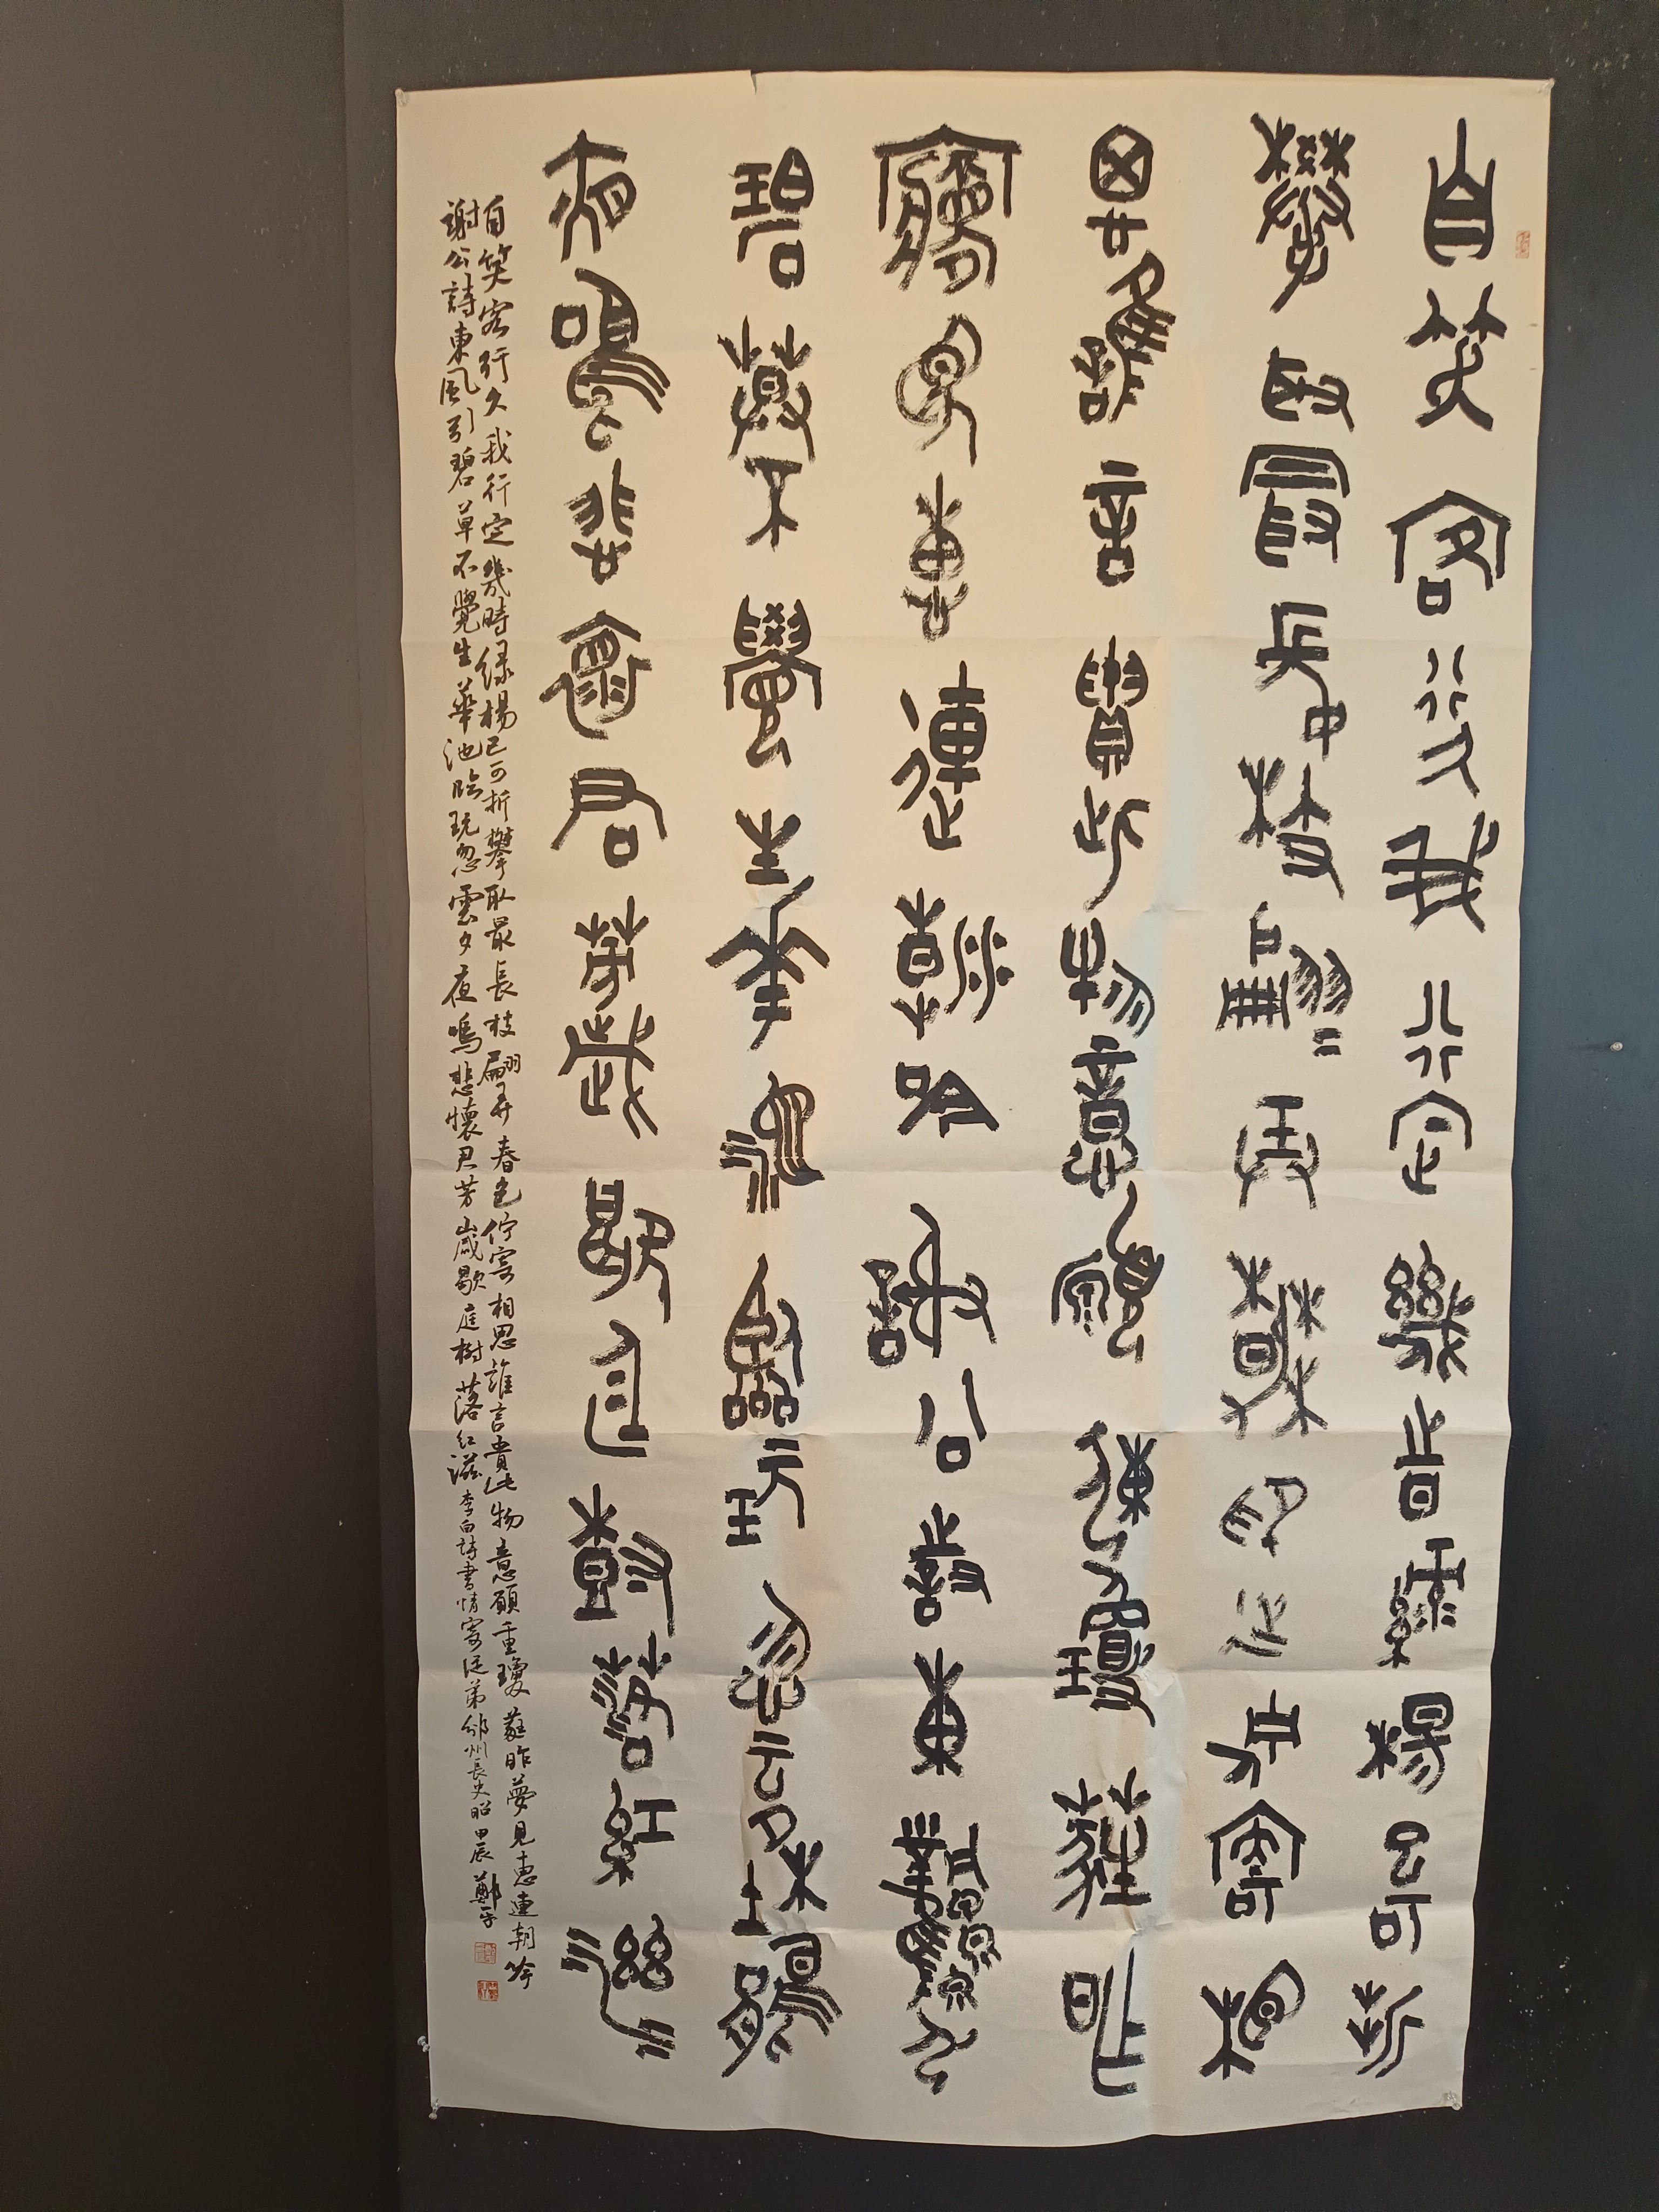 自笑客行久我行定幾時綠楊已可折
攀取最長枝翩〻弄春色延佇寄相
思誰言貴此物意願重瓊蕤昨
夢見惠連朝吟謝公詩東風引
碧草不覺生華池臨玩忽云夕杜鵑
夜鳴悲懷君芳歲歇庭樹落紅滋
自笑客行久我行定幾時绿楊已可折攀取最長枝翩弄春色佇寄相思誰言貴此物意願重瓊蕤昨夢見惠連朝吟
謝公詩東風引碧草不覺生華池臨玩忽雲夕夜鳴悲懷君芳歲歇庭樹落紅滋李白詩書情寄從弟邠州長史昭甲辰鄭